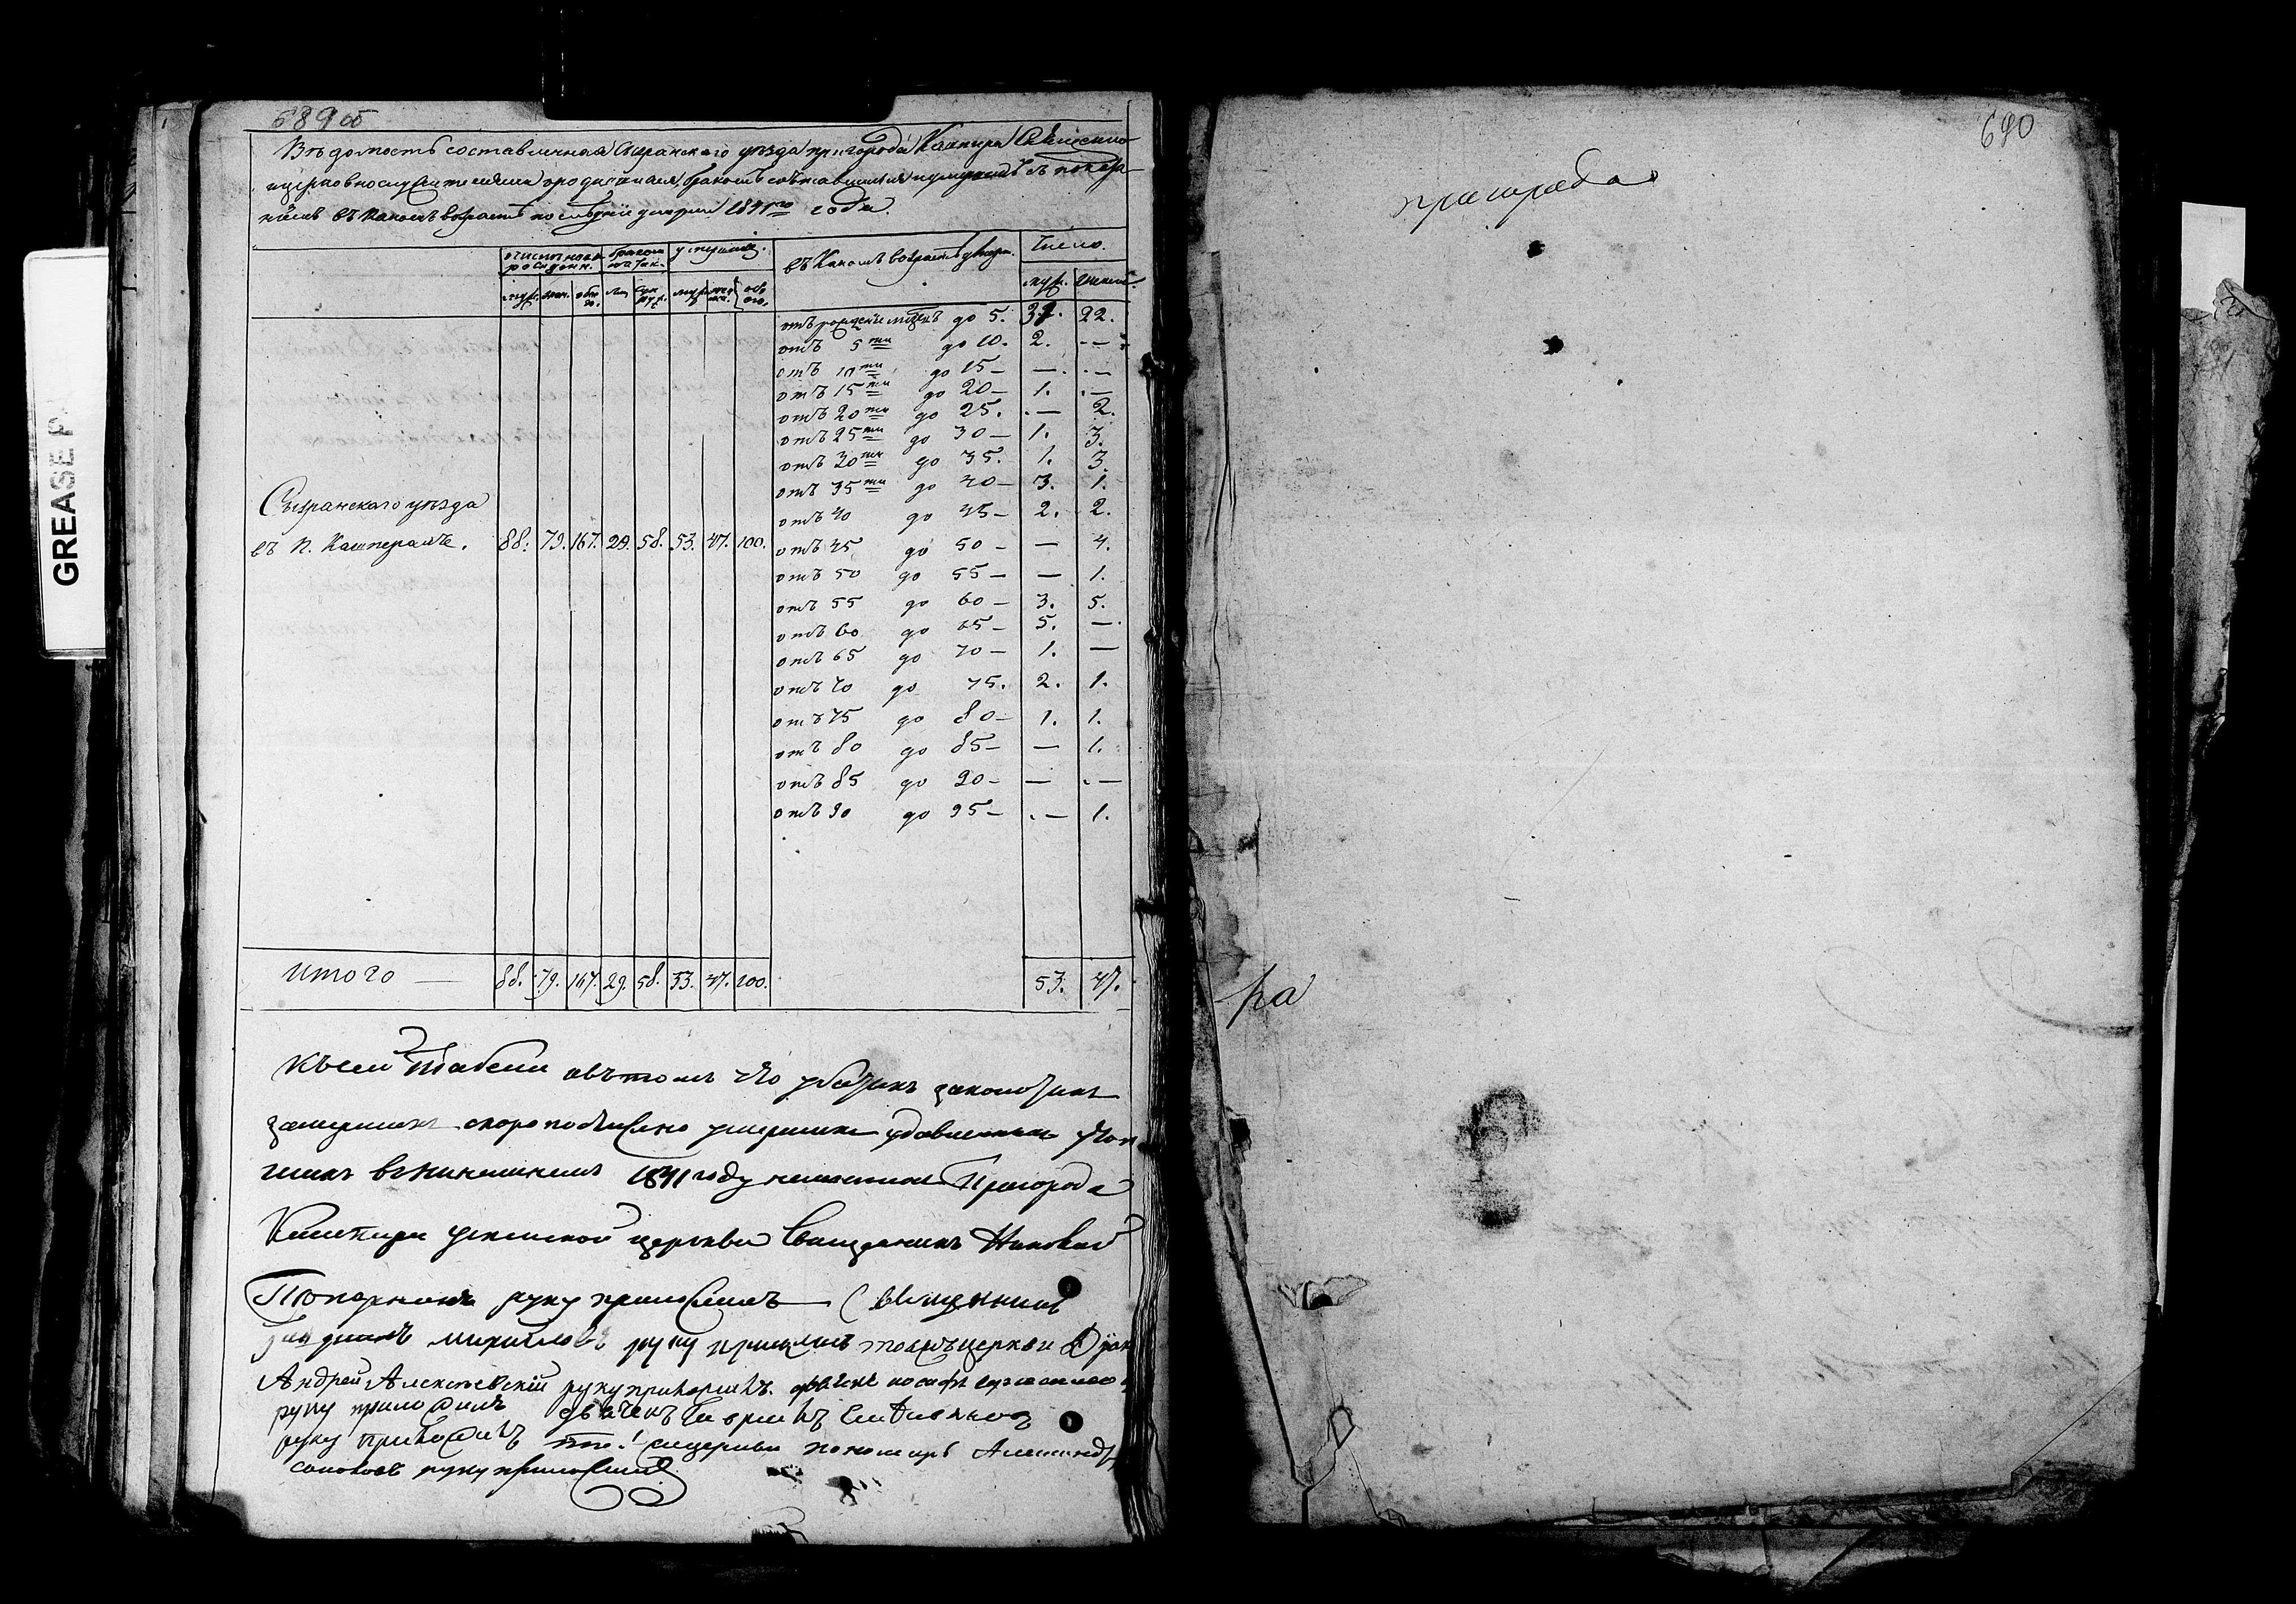 689 об
Вѣдомость составленная Сызранскаго уѣзда пригорода Кашпира Священно
церковнослужителями о родившихся, бракомъ сочетавшихся и умершихъ съ показа
ніемъ въ какомъ возрастѣ послѣдніе умерли 1841го года.
числ родивш. бракомъ сочетан. умершихъ. въ какомъ возрастѣ умерли. Число.
муж. жен. обоего. лиц супруж. муж. женск. обоего. муж. женск.
отъ рожденія младен. до 5. 31. 22.
отъ 5ти до 10. 2. —
отъ 10ти до 15 — — —
отъ 15ти до 20 — 1. —
отъ 20ти до 25. — 2.
отъ 25ти до 30 — 1. 3.
отъ 30ти до 35. 1. 3.
отъ 35ти до 40 — 3. 1.
Сызранскаго уѣзда
отъ 40 до 45 — 2. 2.
въ п. Кашперахъ. 88. 79. 167. 29. 58. 53. 47. 100. отъ 45 до 50 — — 4.
отъ 50 до 55 — — 1.
отъ 55 до 60 — 3. 5.
отъ 60 до 65 — 5. —
отъ 65 до 70 — 1. —
отъ 70 до 75. 2. 1.
отъ 75 до 80 — 1. 1.
отъ 80 до 85 — — 1.
отъ 85 до 90 — — —
отъ 90 до 95 — — 1.
Итого — 88. 79. 167. 29. 58. 53. 47. 100. 53. 47.
Къ сей табели о въ томъ что
скоропостижно умершихъ удавшихся
1841 году Пригорода
Кашпира Успенской церкви Священникъ Николай
Топорнинъ руку приложилъ Священникъ
Михайловъ руку приложилъ тойже церкви Діак
Андрей Алексѣевскій руку приложилъ. дьячекъ
руку приложилъ дьячекъ Гаврилъ
руку приложилъ церкви пономарь Александр
Соколовъ руку приложилъ
690
пригорода
ра
GREASE P